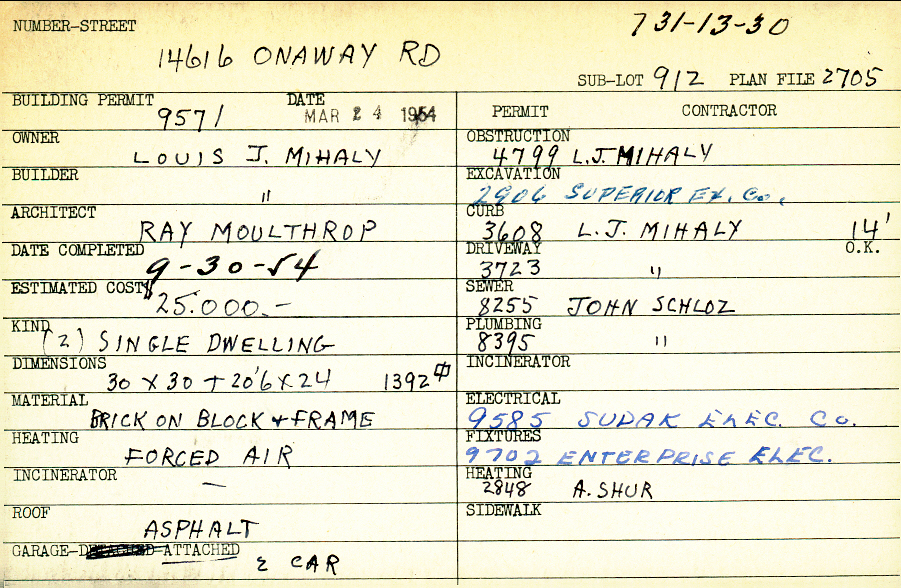 NUMBER-STREET
731-13-30
14616 ONAWAY RD
SUB-LOT 912 PLAN FILE 2705
BUILDING PERMIT 9571 DATE MAR 24 1954
PERMIT CONTRACTOR
OWNER
LOUIS J. MIHALY
OBSTRUCTION
4799 L.J. MIHALY
BUILDER
"
EXCAVATION
2906 SUPERIOR EX. Co.
ARCHITECT
RAY MOULTHROP
CURB
3608 L.J. MIHALY 14'
O.K.
DATE COMPLETED
9-30-54
DRIVEWAY
3723 "
ESTIMATED COST
$25.000.-
SEWER
8255 JOHN SCHLOZ
KIND
(2) SINGLE DWELLING
PLUMBING
8395 "
DIMENSIONS
30 X 30 + 20'6 X 24 1392 ⌽
INCINERATOR
MATERIAL
BRICK ON BLOCK + FRAME
ELECTRICAL
9585 SUDAK ELEC. Co.
HEATING
FORCED AIR
FIXTURES
9702 ENTERPRISE ELEC.
INCINERATOR
—
HEATING
2848 A. SHUR
ROOF
ASPHALT
SIDEWALK
GARAGE-DETACHED-ATTACHED
2 CAR